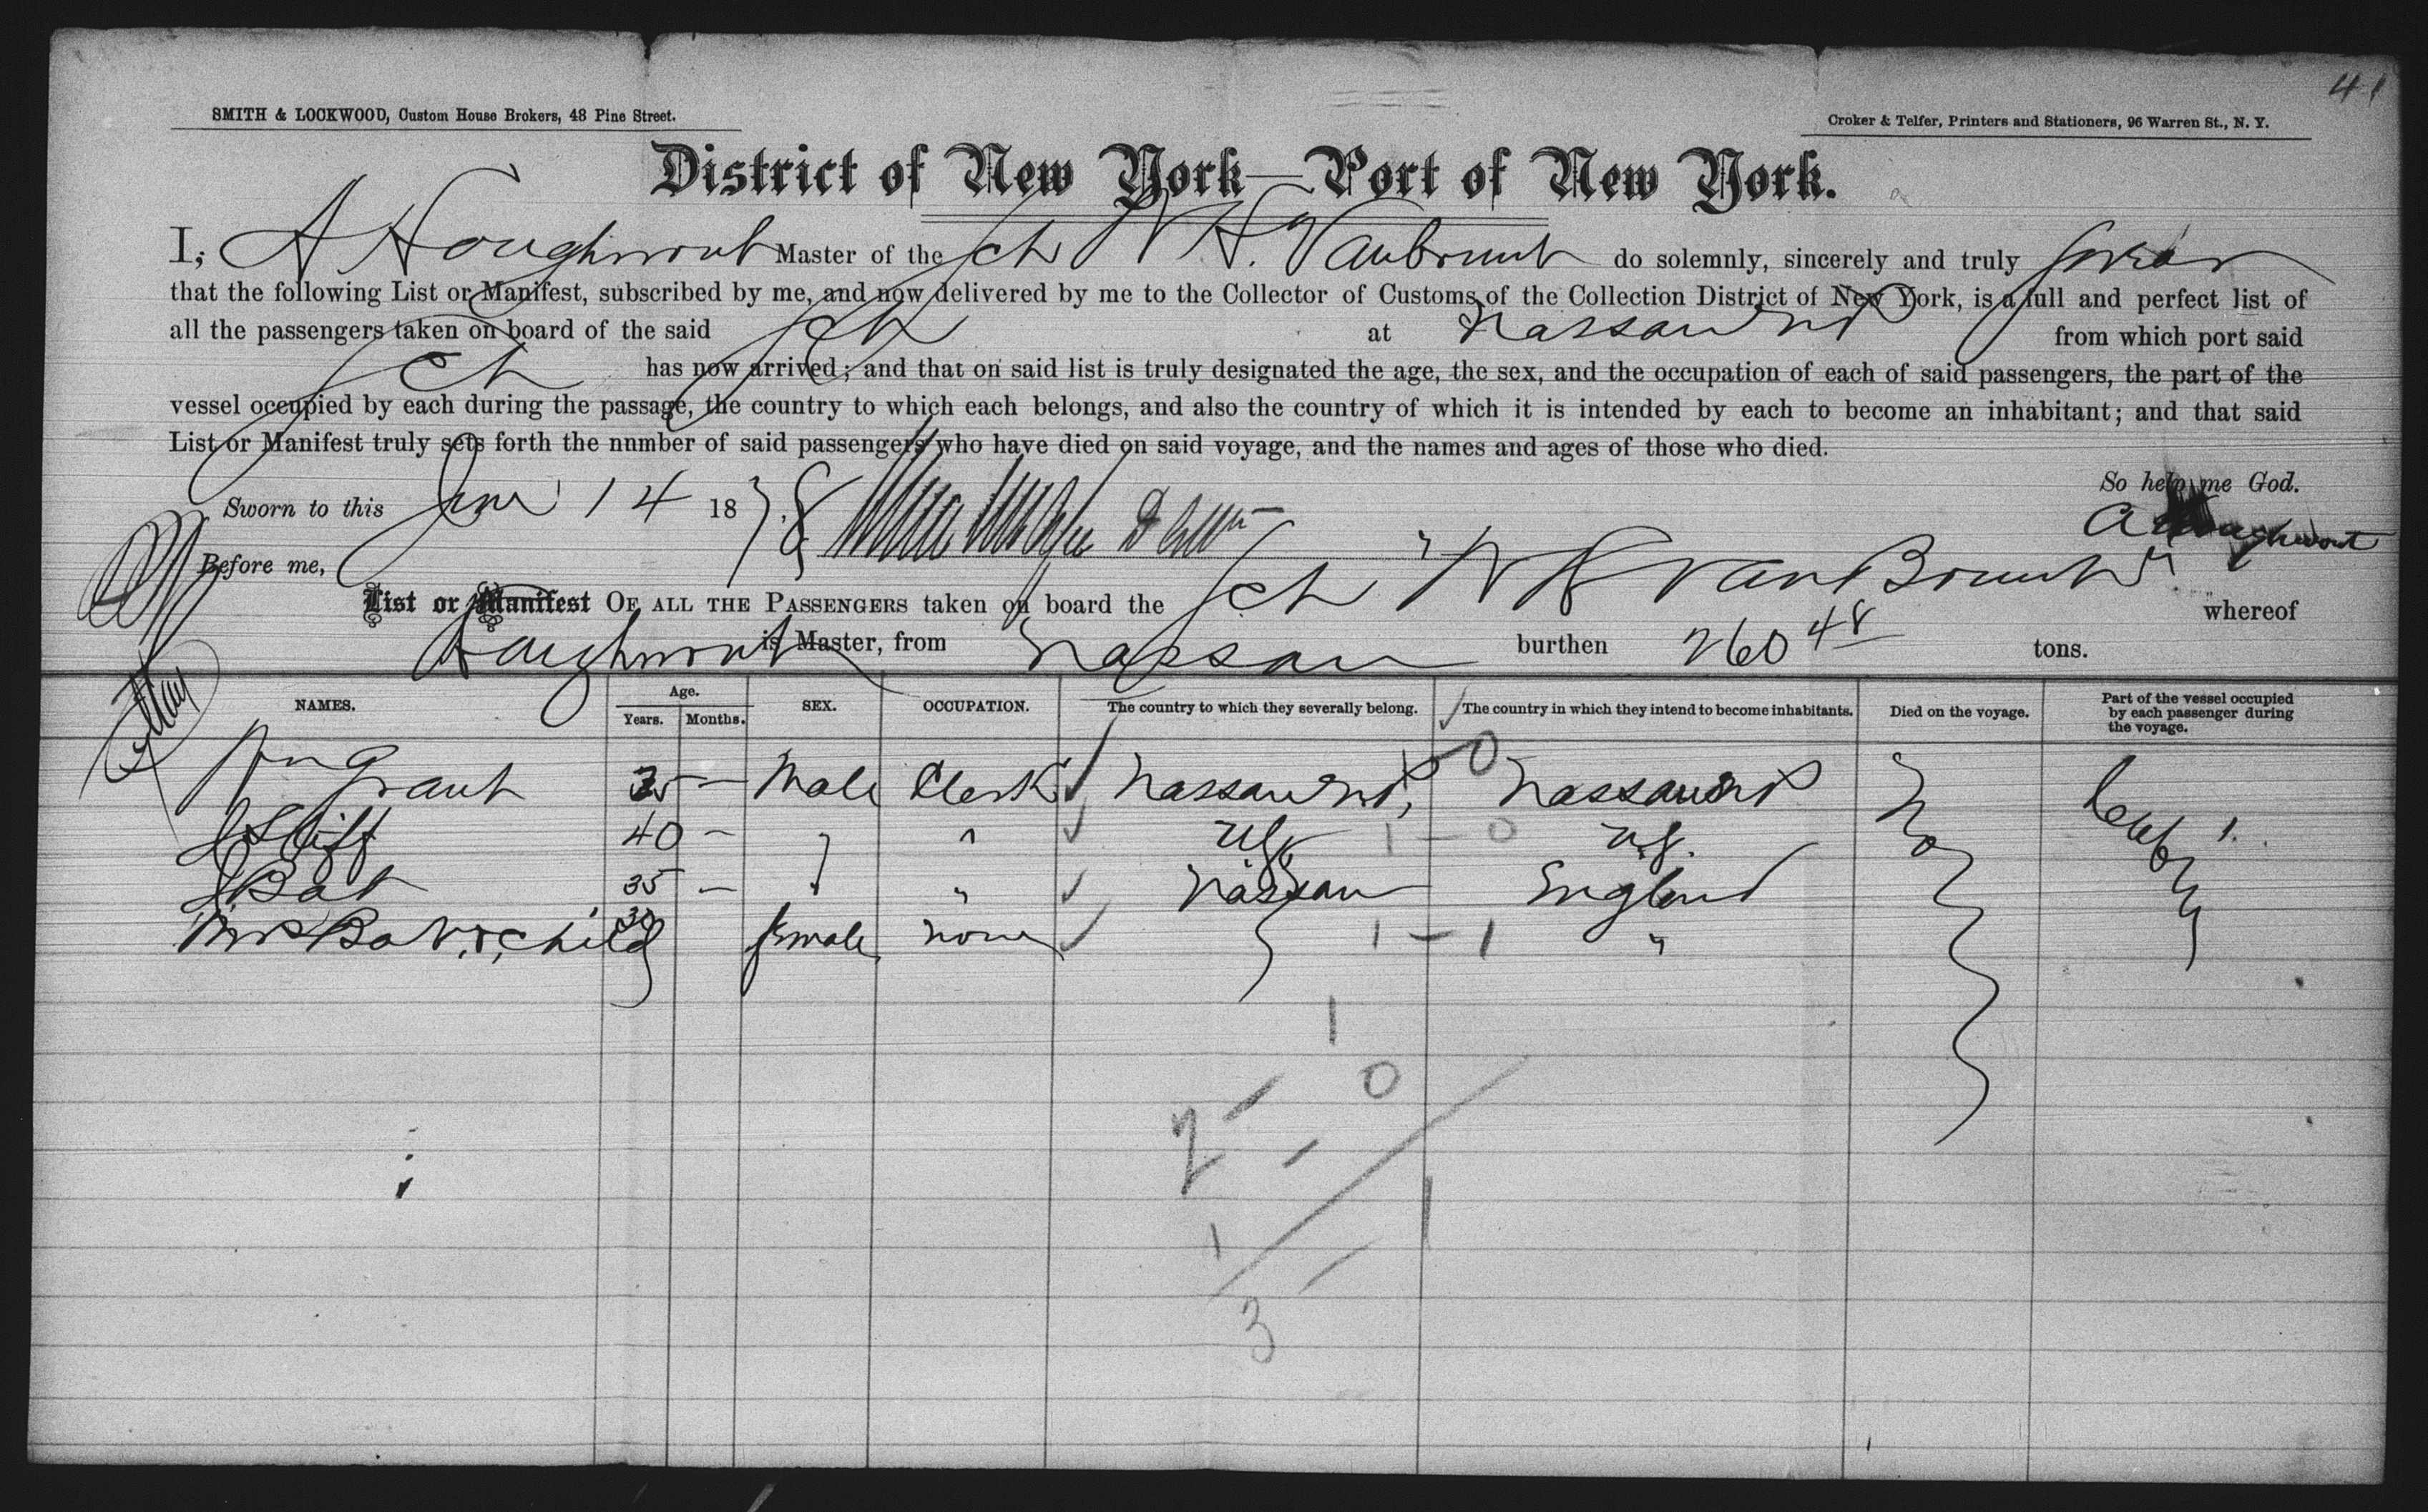 41
SMITH & LOCKWOOD, Custom House Brokers, 48 Pine Street.
Croker & Telfer, Printers and Stationers, 96 Warren St., N. Y.
District of New York—Port of New York.
I, A Houghwout Master of the Sch W H. Vanbrunt do solemnly, sincerely and truly swear
that the following List or Manifest, subscribed by me, and now delivered by me to the Collector of Customs of the Collection District of New York, is a full and perfect list of
all the passengers taken on board of the said Sch at Nassau NP from which port said
Sch has now arrived; and that on said list is truly designated the age, the sex, and the occupation of each of said passengers, the part of the
vessel occupied by each during the passage, the country to which each belongs, and also the country of which it is intended by each to become an inhabitant; and that said
List or Manifest truly sets forth the nnmber of said passengers who have died on said voyage, and the names and ages of those who died.
So help me God.
Sworn to this June 14 1878
A Houghwout
Before me,
List or Manifest OF ALL THE PASSENGERS taken on board the Sch W H Van Brunt whereof
Houghwout is Master, from Nassau burthen 260 48 tons.
NAMES. Age. Years. Months. SEX. OCCUPATION. The country to which they severally belong. The country in which they intend to become inhabitants. Died on the voyage. Part of the vessel occupied by each passenger during the voyage.
Grant 35 — Male Clerk Nassau NP, 0 Nassau NP No
40 — " US 1 — 0 U.S.
35 — " Nassau England
Mrs child 30 female none 1 — 1 "
1
0
2
1
1
3